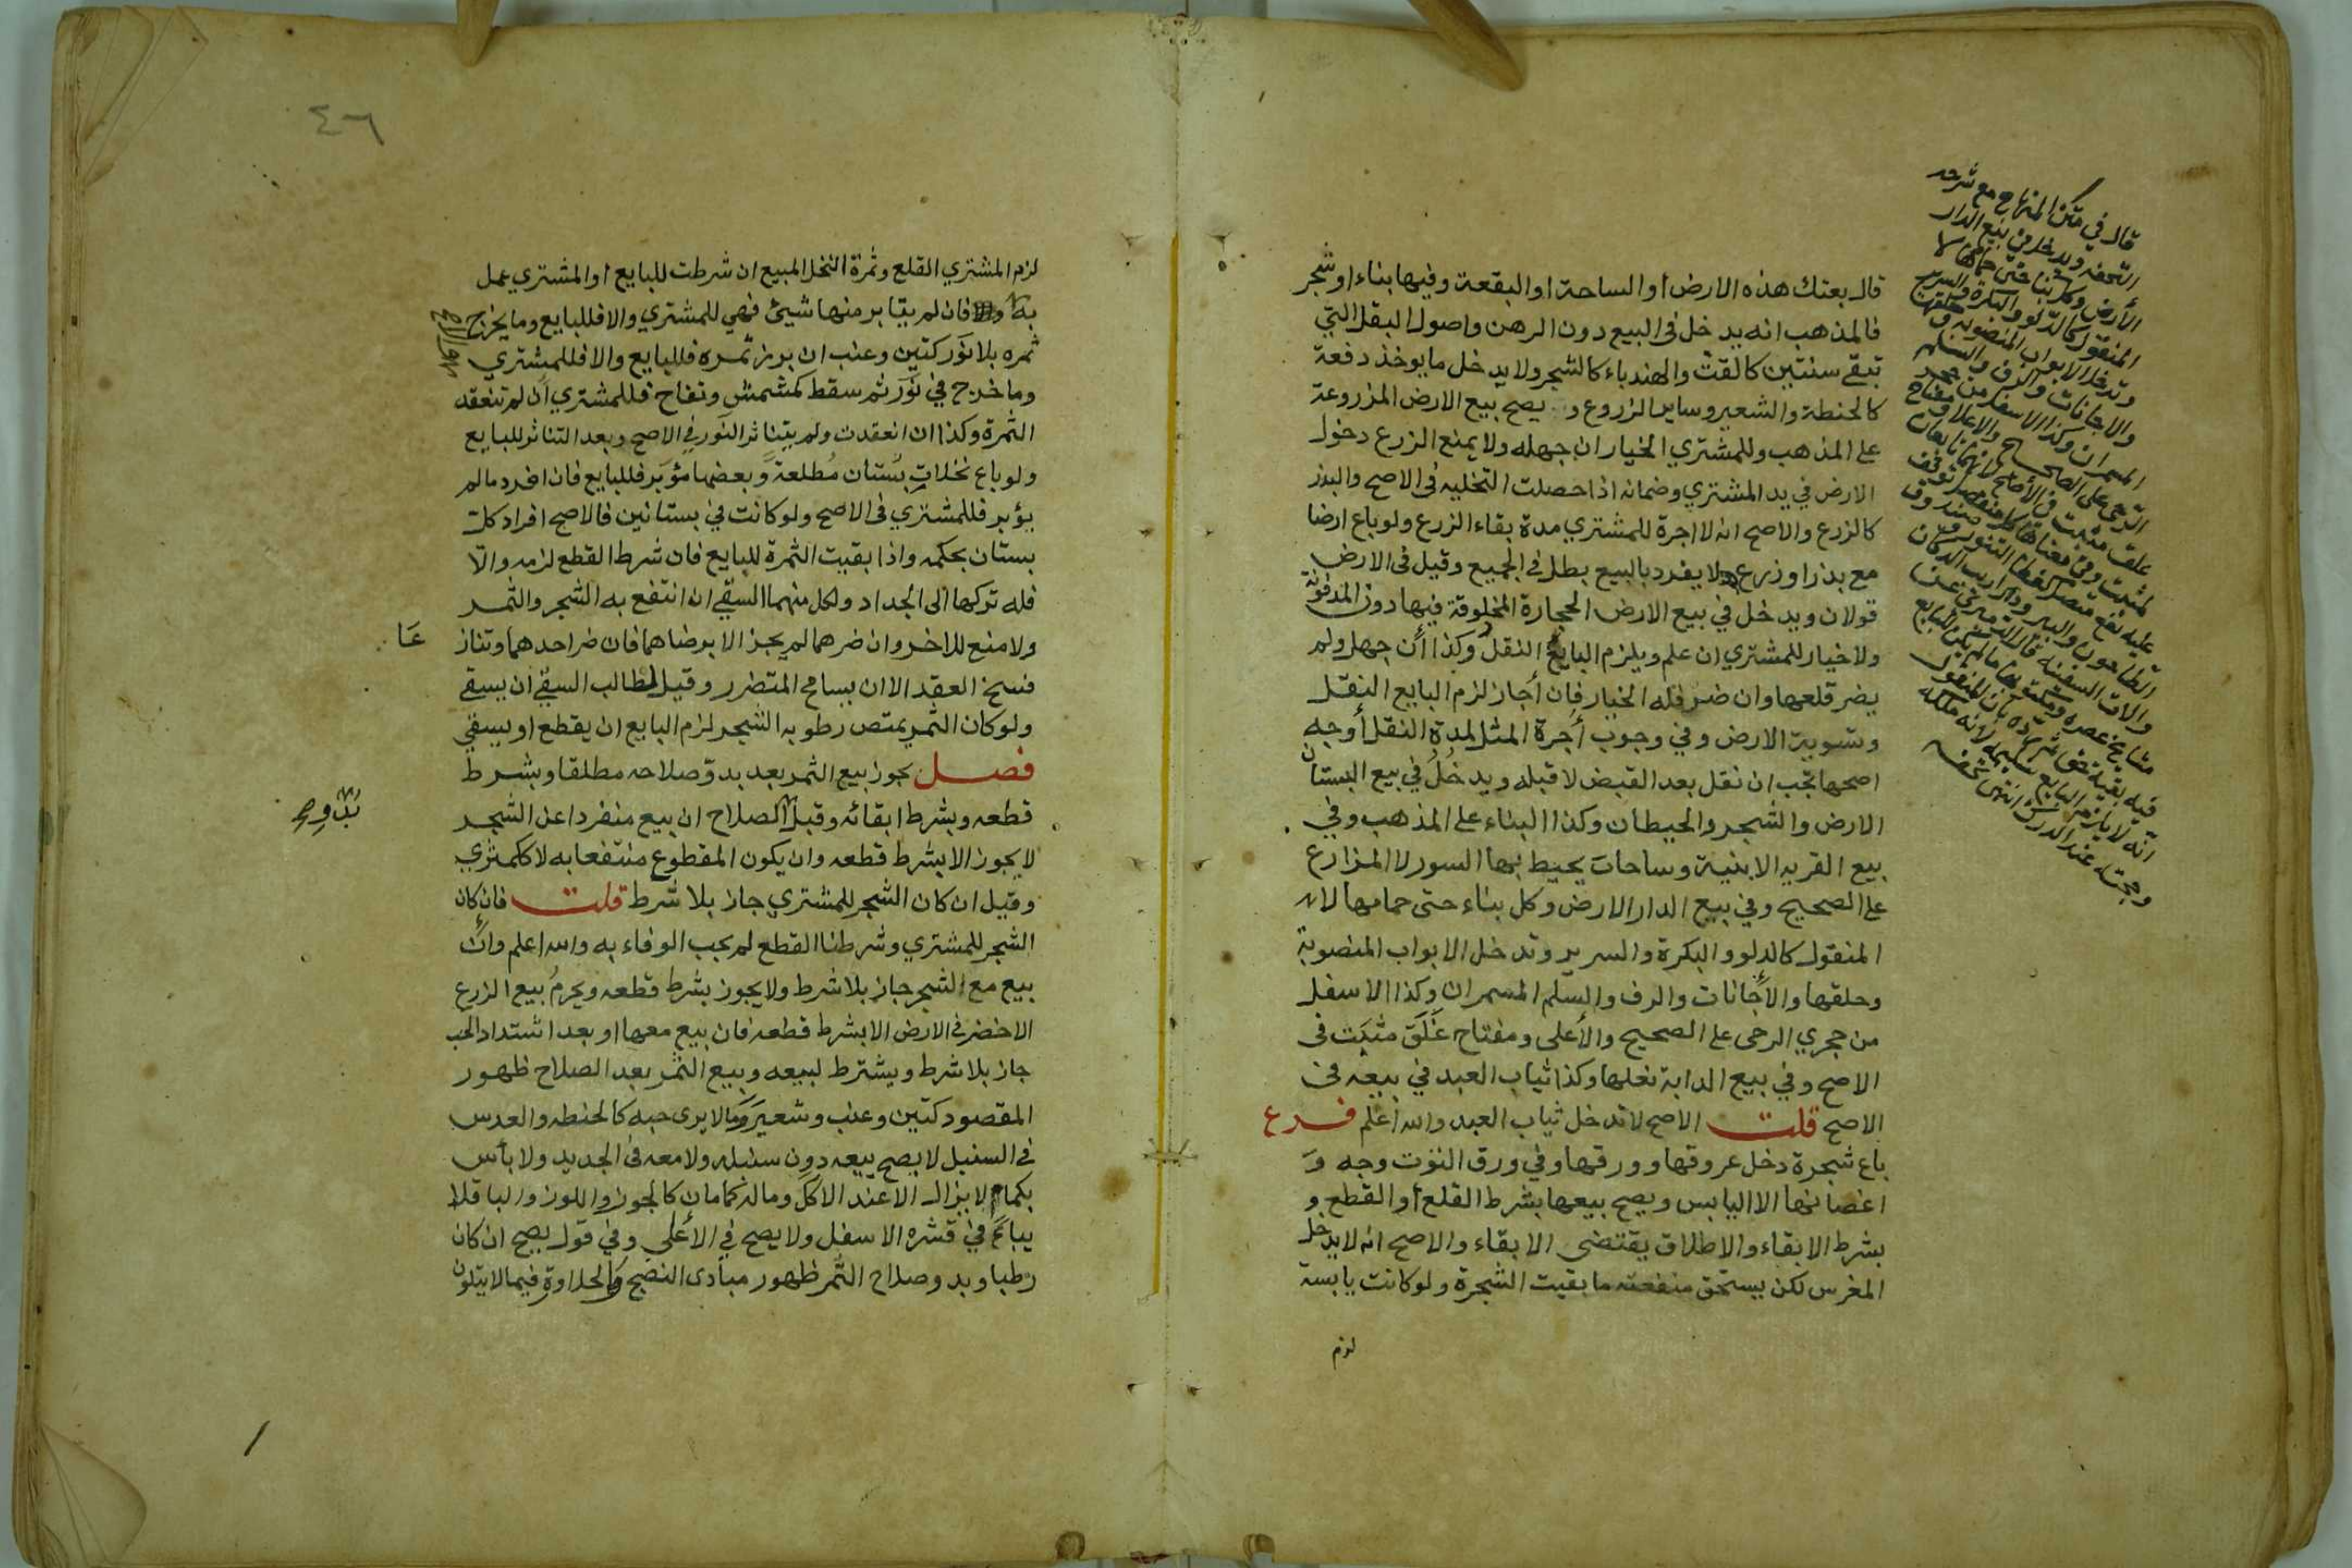 قال بعتك هذه الارض او الساحة او البقعة وفيها بناء او شجر
فالمذهب انه يدخل في البيع دون الرهن واصول البقل التي
تبقى سنتين كالقت والهندباء كالشجر ولا يدخل ما يوخذ دفعة
كالحنطة والشعير وساير الزروع و يصح بيع الارض المزروعة
على المذهب وللمشتري الخيار ان جهله ولا يمنع الزرع دخول
الارض في يد المشتري وضمانه اذا حصلت التخليه في الاصح والبذر
كالزرع والاصح انه لا اجرة للمشتري مدة بقاء الزرع ولو باع ارضا
مع بذر او زرع لا يفرد بالبيع بطل في الجميع وقيل في الارض
قولان ويدخل في بيع الارض الحجارة المخلوقة فيها دون المدفونة
ولا خيار للمشتري ان علم ويلزم البايع النقل وكذا ان جهل ولم
يضر قلعها وان ضر فله الخيار فان أجاز لزم البايع النقل
وتسوية الارض وفي وجوب أجرة المثل لمدة النقل أوجه
اصحها تجب ان نقل بعد القبض لا قبله ويدخل في بيع البستان
الارض والشجر والحيطان وكذا البناء على المذهب وفي
بيع القريه الابنية وساحات يحيط بها السور لا المزارع
على الصحيح وفي بيع الدار الارض وكل بناء حتى حمامها لا
المنقول كالدلو والبكرة والسرير وتدخل الابواب المنصوبة
وحلقها والأجانات والرف والسلم المسمران وكذا الاسفل
من حجري الرحى على الصحيح والأعلى ومفتاح غلق مثبت في
الاصح وفي بيع الدابة نعلها وكذا ثياب العبد في بيعه في
الاصح قلت الاصح لا تدخل ثياب العبد والله أعلم فرع
باع شجرة دخل عروقها وورقها وفي ورق التوت وجه و
اغصانها الا اليابس ويصح بيعها بشرط القلع أو القطع و
بشرط الابقاء والاطلاق يقتضى الابقاء والاصح انه لا يدخل
المغرس لكن يستحق منفعته ما بقيت الشجرة ولو كانت يابسة
لزم
قال في متن المنهاج مع شرحه
التحفه ويدخل في بيع الدار
الأرض وكل بناء حتى حمامها لا
المنقول كالدلو والبكرة والسرير
وتدخل الابواب المنصوبه وحلقها
والاجانات والرف والسلم
المسمران وكذا الاسفل من حجر
الرحى على الصحيح والاعلا ومفتاح
٤٦
لزم المشتري القلع وثمرة النخل المبيع ان شرطت للبايع او المشتري عمل
به والا فان لم يتابر منها شيئ فهي للمشتري والا فللبايع وما يخرج
ثمره بلا نور كتين وعنب ان برز ثمره فللبايع والا فللمشتري
وما خرج في نور ثم سقط كمشمش وتفاح فللمشتري ان لم تنعقد
الثمرة وكذا ان انعقدت ولم يتناثر النور في الاصح وبعد التناثر للبايع
ولو باع نخلات بستان مطلعة وبعضها مؤبر فللبايع فان افرد ما لم
يؤبر فللمشتري في الاصح ولو كانت في بستانين فالاصح افراد كل
بستان بحكمه واذا بقيت الثمرة للبايع فان شرط القطع لزمه والا
فله تركها الى الجداد ولكل منهما السقي ان انتفع به الشجر والثمر
ولا منع للاخر وان ضرهما لم يجز الا برضاهما فان ضر احدهما وتناز
عا
فسخ العقد الا ان يسامح المتضرر وقيل لطالب السقي ان يسقي
ولو كان الثمر يمتص رطوبه الشجر لزم البايع ان يقطع او يسقي
فصل يجوز بيع الثمر بعد بدو صلاحه مطلقا وبشرط
قطعه وبشرط ابقائه وقبل الصلاح ان بيع منفردا عن الشجر
بدو
لا يجوز الا بشرط قطعه وان يكون المقطوع منتفعا به لا ككمثري
وقيل ان كان الشجر للمشتري جاز بلا شرط قلت فان كان
الشجر للمشتري وشرطنا القطع لم يجب الوفاء به والله اعلم وان
بيع مع الشجر جاز بلا شرط ولا يجوز بشرط قطعه ويحرم بيع الزرع
الاخضر في الارض الا بشرط قطعه فان بيع معها او بعد اشتداد الحب
جاز بلا شرط ويشترط لبيعه وبيع الثمر بعد الصلاح ظهور
المقصود كتين وعنب وشعير وما لا يرى حبه كالحنطه والعدس
في السنبل لا يصح بيعه دون سنبله ولا معه في الجديد ولا بأس
بكمام لا يزال الا عند الاكل وماله كمامان كالجوز واللوز والباقلا
يباع في قشره الاسفل ولا يصح في الأعلى وفي قول يصح ان كان
رطبا وبدو صلاح الثمر ظهور مبادى النضج والحلاوة فيما لا يتلون